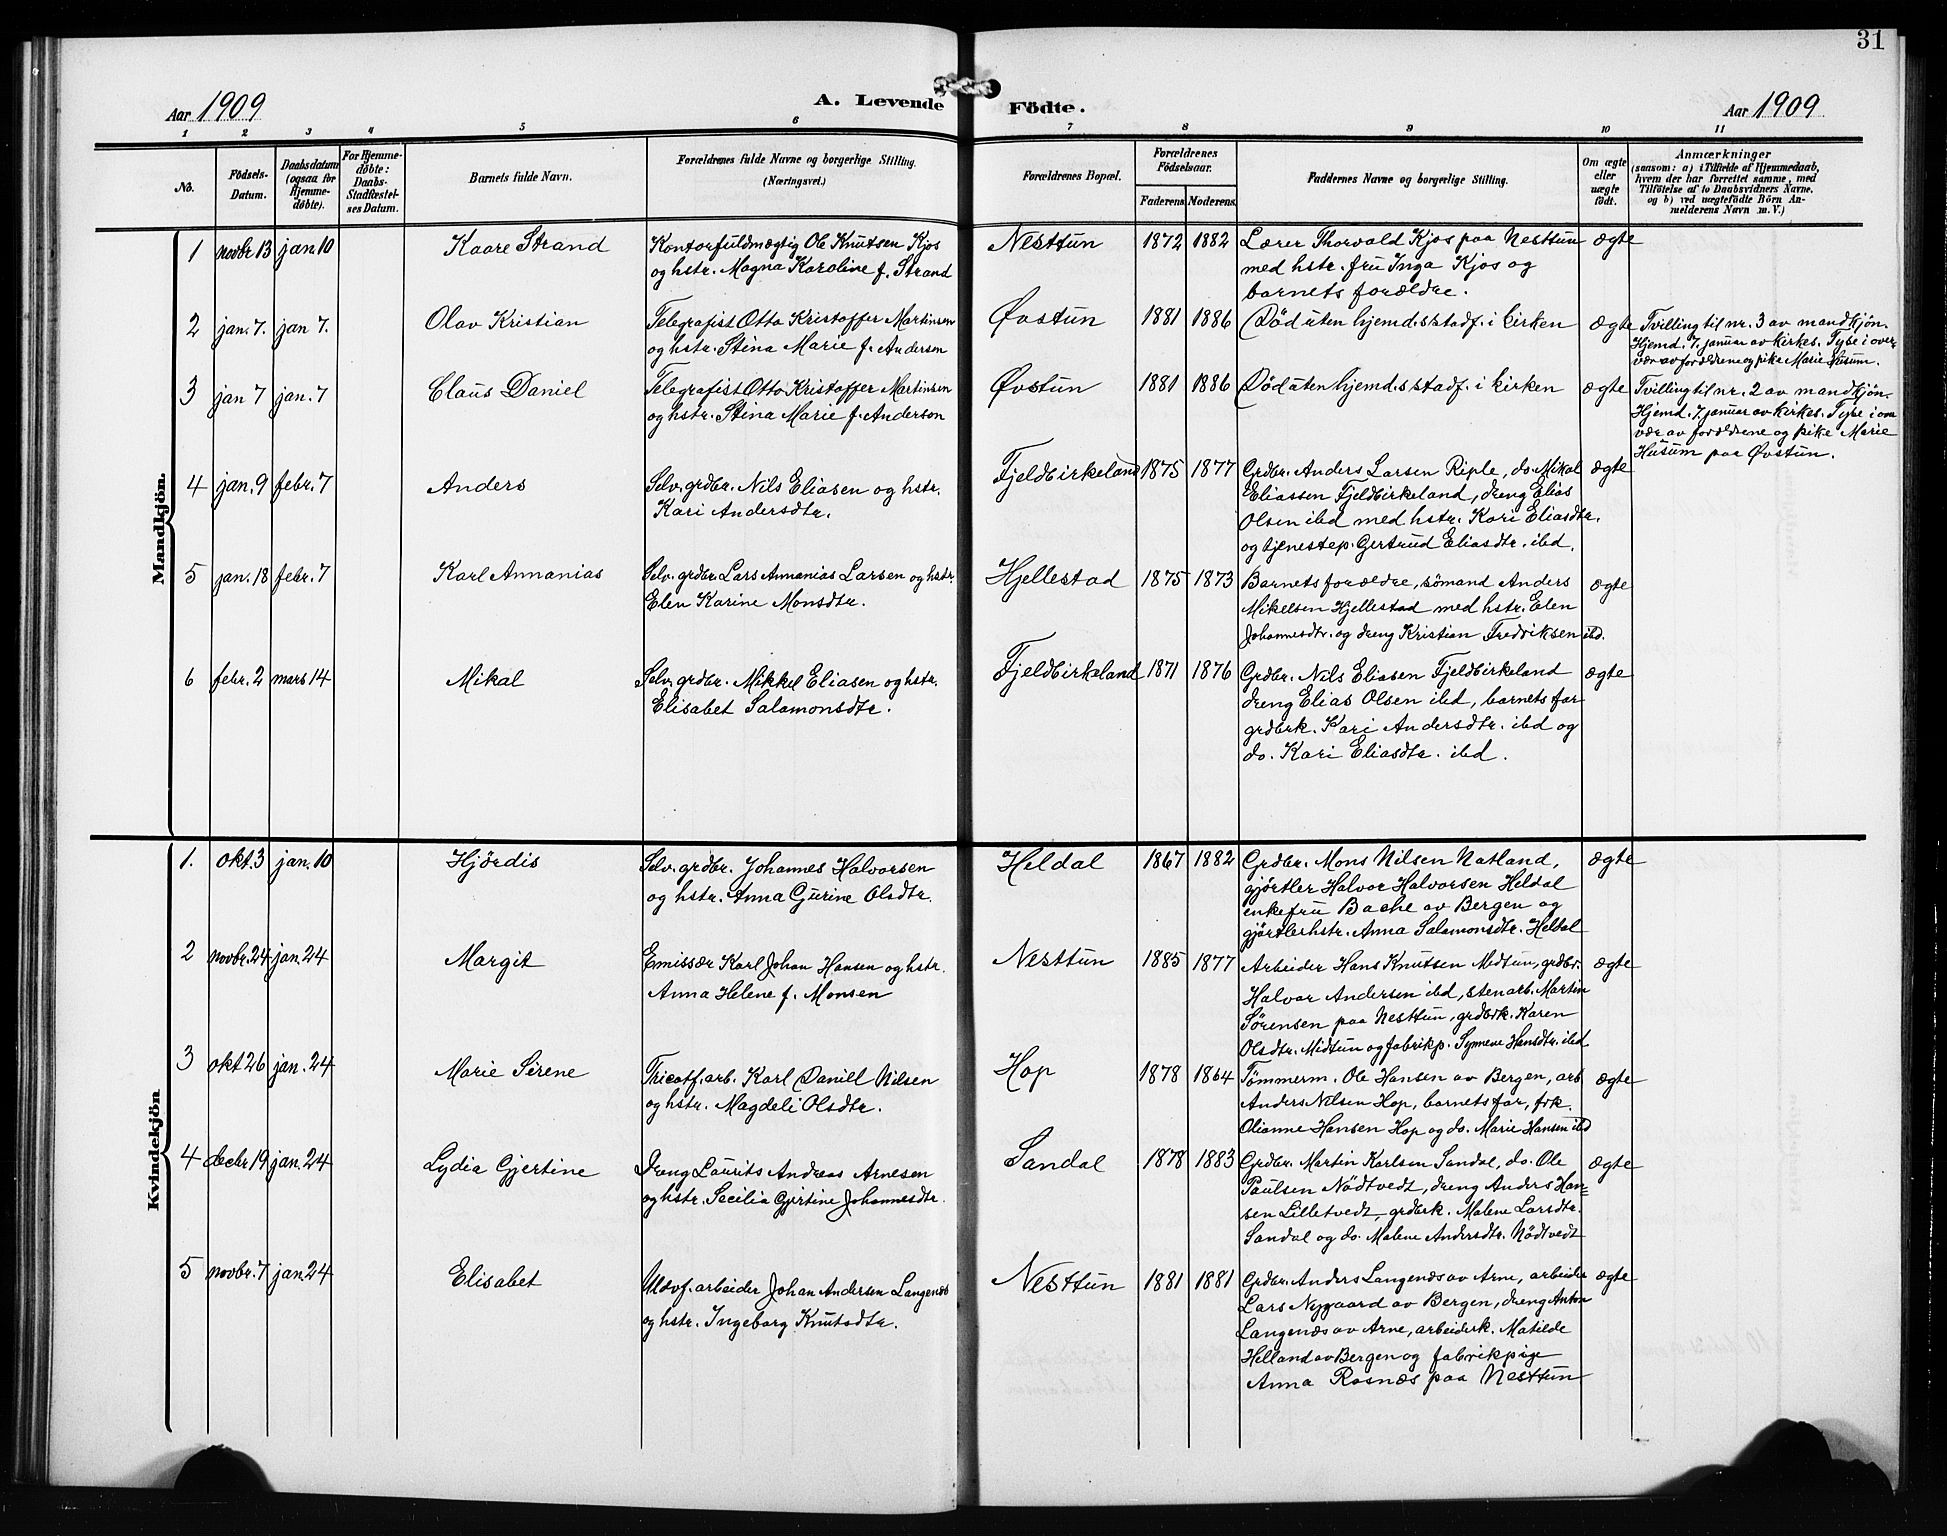 31
Aar 1909
A. Levende Födte.
Aar 1909
1 2 3 4 5 6 7 8 9 10 11
No.
Födsels-Datum.
Daabsdatum (ogsaa for Hjemme-døbte).
For Hjemme-døbte: Daabs-Stadfæstel-ses Datum.
Barnets fulde Navn.
Forældrenes fulde Navne og borgerlige Stilling. (Næringsvei.)
Forældrenes Bopæl.
Forældrenes Födselsaar.
Faderens Moderens
Faddernes Navne og borgerlige Stilling.
Om ægte eller uægte födt.
Anmærkninger
(saasom: a) i Tilfælde af Hjemmedaab,
hvem der har forrettet samme, med
Tilföielse af to Daabsvidners Navne,
og b) ved uægtefödte Börn An-
melderens Navn m. V.)
Mandkjön.
1 novbr 13 jan 10 Kaare Strand
Kontorfuldmægtig Ole Knutsen Kjos
og hstr. Magna Karoline f. Strand
Nesttun 1872 1882
Lærer Thorvald Kjos paa Nesttun
med hstr. fru Inga Kjos og
barnets forældre.
ægte
2 jan. 7. jan 7. Olav Kristian
Telegrafist Otto Kristoffer Martinsen
og hstr. Stina Marie f. Anderson
Øvstun 1881 1886
Død uten hjemd.s stadf. i kirken
ægte
Tvilling til nr. 3 av mandkjøn.
Hjemd. 7. januar av kirkes. Tybe i over
vær av forældrene og pike Marie Husum.
3 jan 7 jan. 7 Claus Daniel
Telegrafist Otto Kristoffer Martinsen
og hstr. Stina Marie f. Anderson
Øvstun 1881 1886
Død uten hjemd.s stadf. i kirken
ægte
Tvilling til nr. 2 av mandkjön.
Hjemd. 7. januar av kirkes. Tybe i over
vær av forældrene og pike Marie
Husum paa Øvstun.
4 jan. 9 febr. 7 Anders
Selv. grdbr. Nils Eliasen og hstr.
Kari Andersdtr.
Fjeldbirkeland 1875 1877
Grdbr. Anders Larsen Riple, do. Mikal
Eliassen Fjeldbirkeland, dreng Elias
Olsen ibd med hstr. Kari Eliasdtr.
og tjenestep. Gertrud Eliasdtr. ibd.
ægte
5 jan. 18 febr. 7 Karl Annanias
Selv. grdbr. Lars Annanias Larsen og hstr
Elen Karine Monsdtr.
Hjellestad 1875 1873
Barnets forældre, sömand Anders
Mikelsen Hjellestad med hstr. Elen
Johannesdtr. og dreng Kristian Fredriksen ibd.
ægte
6 febr. 2 mars 14 Mikal
Selv. grdbr. Mikkel Eliasen og hstr.
Elisabet Salamonsdtr.
Fjeldbirkeland 1871 1876
Grdbr. Nils Eliasen Fjeldbirkeland
dreng Elias Olsen ibd, barnets far
grdbrk. Kari Andersdtr. ibd og
do. Kari Eliasdtr. ibd.
ægte
Kvindekjön
1. okt. 3 jan. 10 Hjördis
Selv. grdbr. Johannes Halvorsen
og hstr. Anna Gurine Olsdtr.
Heldal 1867 1882
Grdbr. Mons Nilsen Natland,
gjörtler Halvor Halvorsen Heldal
enkefru Bache av Bergen og
gjörtlerhstr. Anna Salamonsdtr. Heldal
ægte
2 novbr. 24 jan. 24 Margit
Emissær Karl Johan Hansen og hstr.
Anna Helene f. Monsen
Nesttun 1885 1877
Arbeider Hans Knutsen Midtun, grdbr.
Halvor Andersen ibd, stenarb. Martin
Sørensen paa Nesttun, grdbrk. Karen
Olsdtr. Midtun og fabrikp. Synneve Hansdtr. ibd
ægte
3 okt 26 jan. 24 Marie Sirene
Tricotf. arb. Karl Daniel Nilsen
og hstr. Magdeli Olsdtr.
Hop 1878 1864
Tømmerm. Ole Hansen av Bergen, arb
Anders Nilsen Hop, barnets far, frk.
Olianne Hansen Hop og do. Marie Hansen ibd
ægte
4 decbr 19 jan. 24 Lydia Gjertine
Dreng Laurits Andreas Arnesen
og hstr. Secilia Gjertine Johannesdtr.
Sandal 1878 1883
Grdbr. Martin Karlsen Sandal, do. Ole
Paulsen Nödtvedt, dreng Anders Han=
sen Lilletvedt, grdbrk. Malene Larsdtr.
Sandal og do. Malene Andersdtr. Nödtvedt
ægte
5 novbr. 7 jan. 24 Elisabet
Uldvf. arbeider Johan Andersen Langenæs
og hstr. Ingeborg Knutsdtr.
Nesttun 1881 1881
Grdbr. Anders Langenæs av Arne, arbeider
Lars Nygaard av Bergen, dreng Anton
Langenæs av Arne, arbeiderk. Matilde
Helland av Bergen og fabrikpige
Anna Rosnæs paa Nesttun
ægte